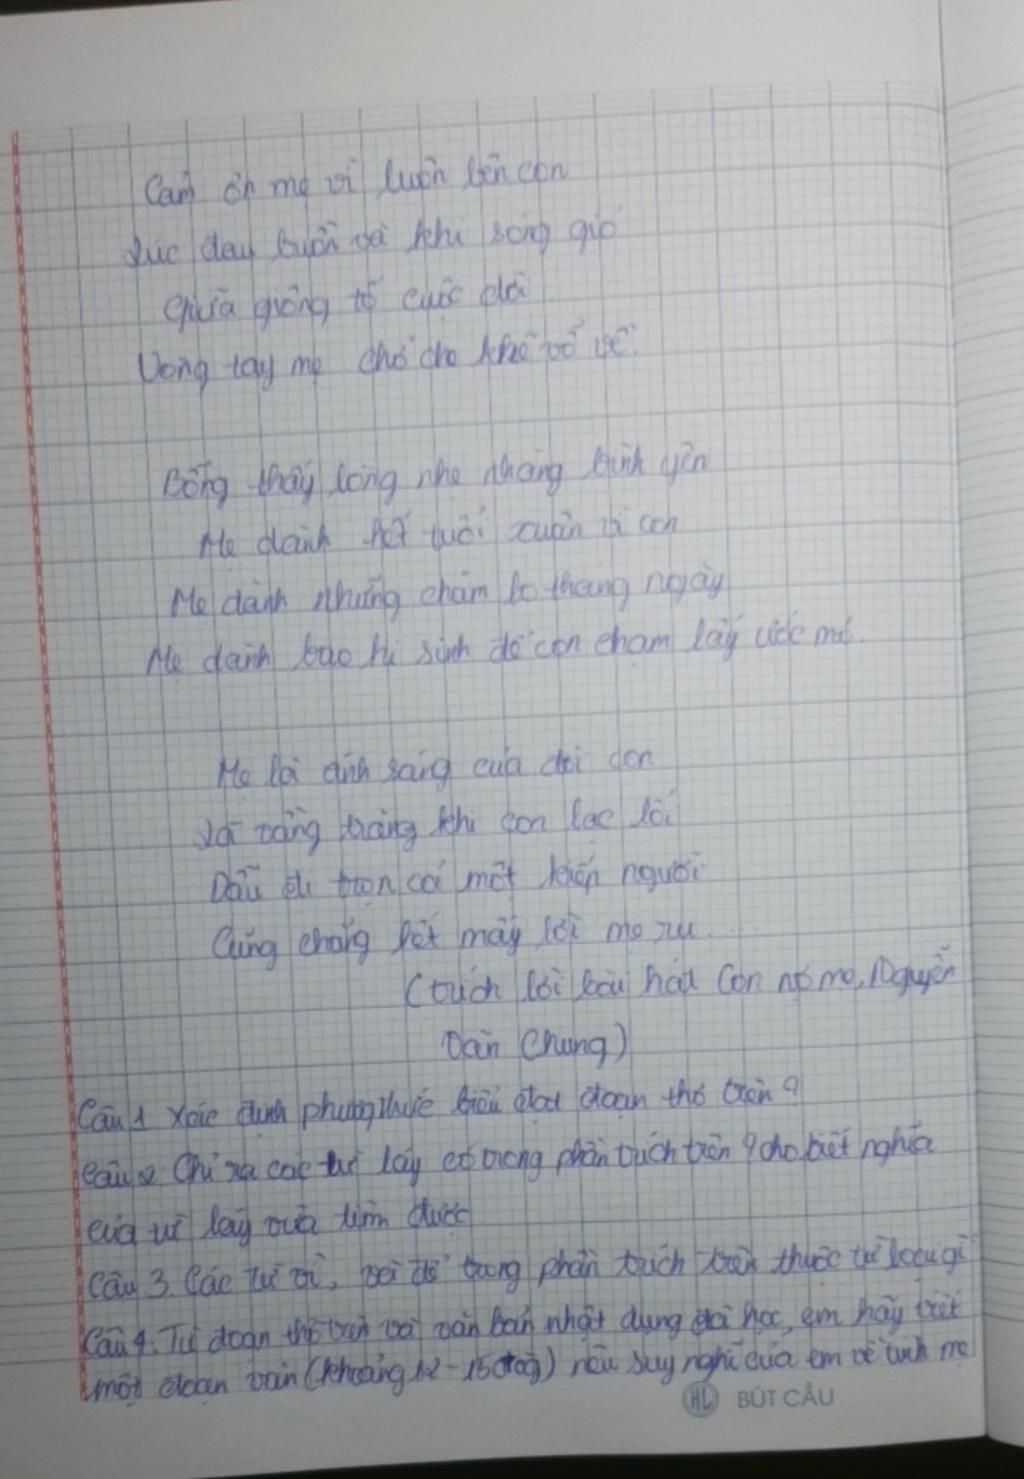 Cảm ơn mẹ vì luôn bên con
Lúc đau buồn và khi sóng gió
Giữa giông tố cuộc đời
Vòng tay mẹ chở che khẽ vỗ về.
Bỗng thấy lòng nhẹ nhàng bình yên
Mẹ dành hết tuổi xuân vì con
Mẹ dành những chăm lo tháng ngày
Mẹ dành bao hi sinh để con chạm lấy ước mơ.
Mẹ là ánh sáng của đời con
Là vầng trăng khi con lạc lối
Dẫu đi trọn cả một kiếp người
Cũng chẳng hết mấy lời mẹ ru...
(trích lời bài hát Con nợ mẹ, Nguyễn
Văn Chung)
Câu 1 Xác định phương thức biểu đạt đoạn thơ trên?
Câu 2 Chỉ ra các từ láy có trong phần trích trên? cho biết nghĩa
của từ láy vừa tìm được
Câu 3. Các từ vì, và, để trong phần trích trên thuộc từ loại gì
Câu 4. Từ đoạn thơ trên và văn bản nhật dụng đã học, em hãy viết
một đoạn văn (khoảng 12-15 dòng) nêu suy nghĩ của em về tình mẹ
HL BÚT CẦU